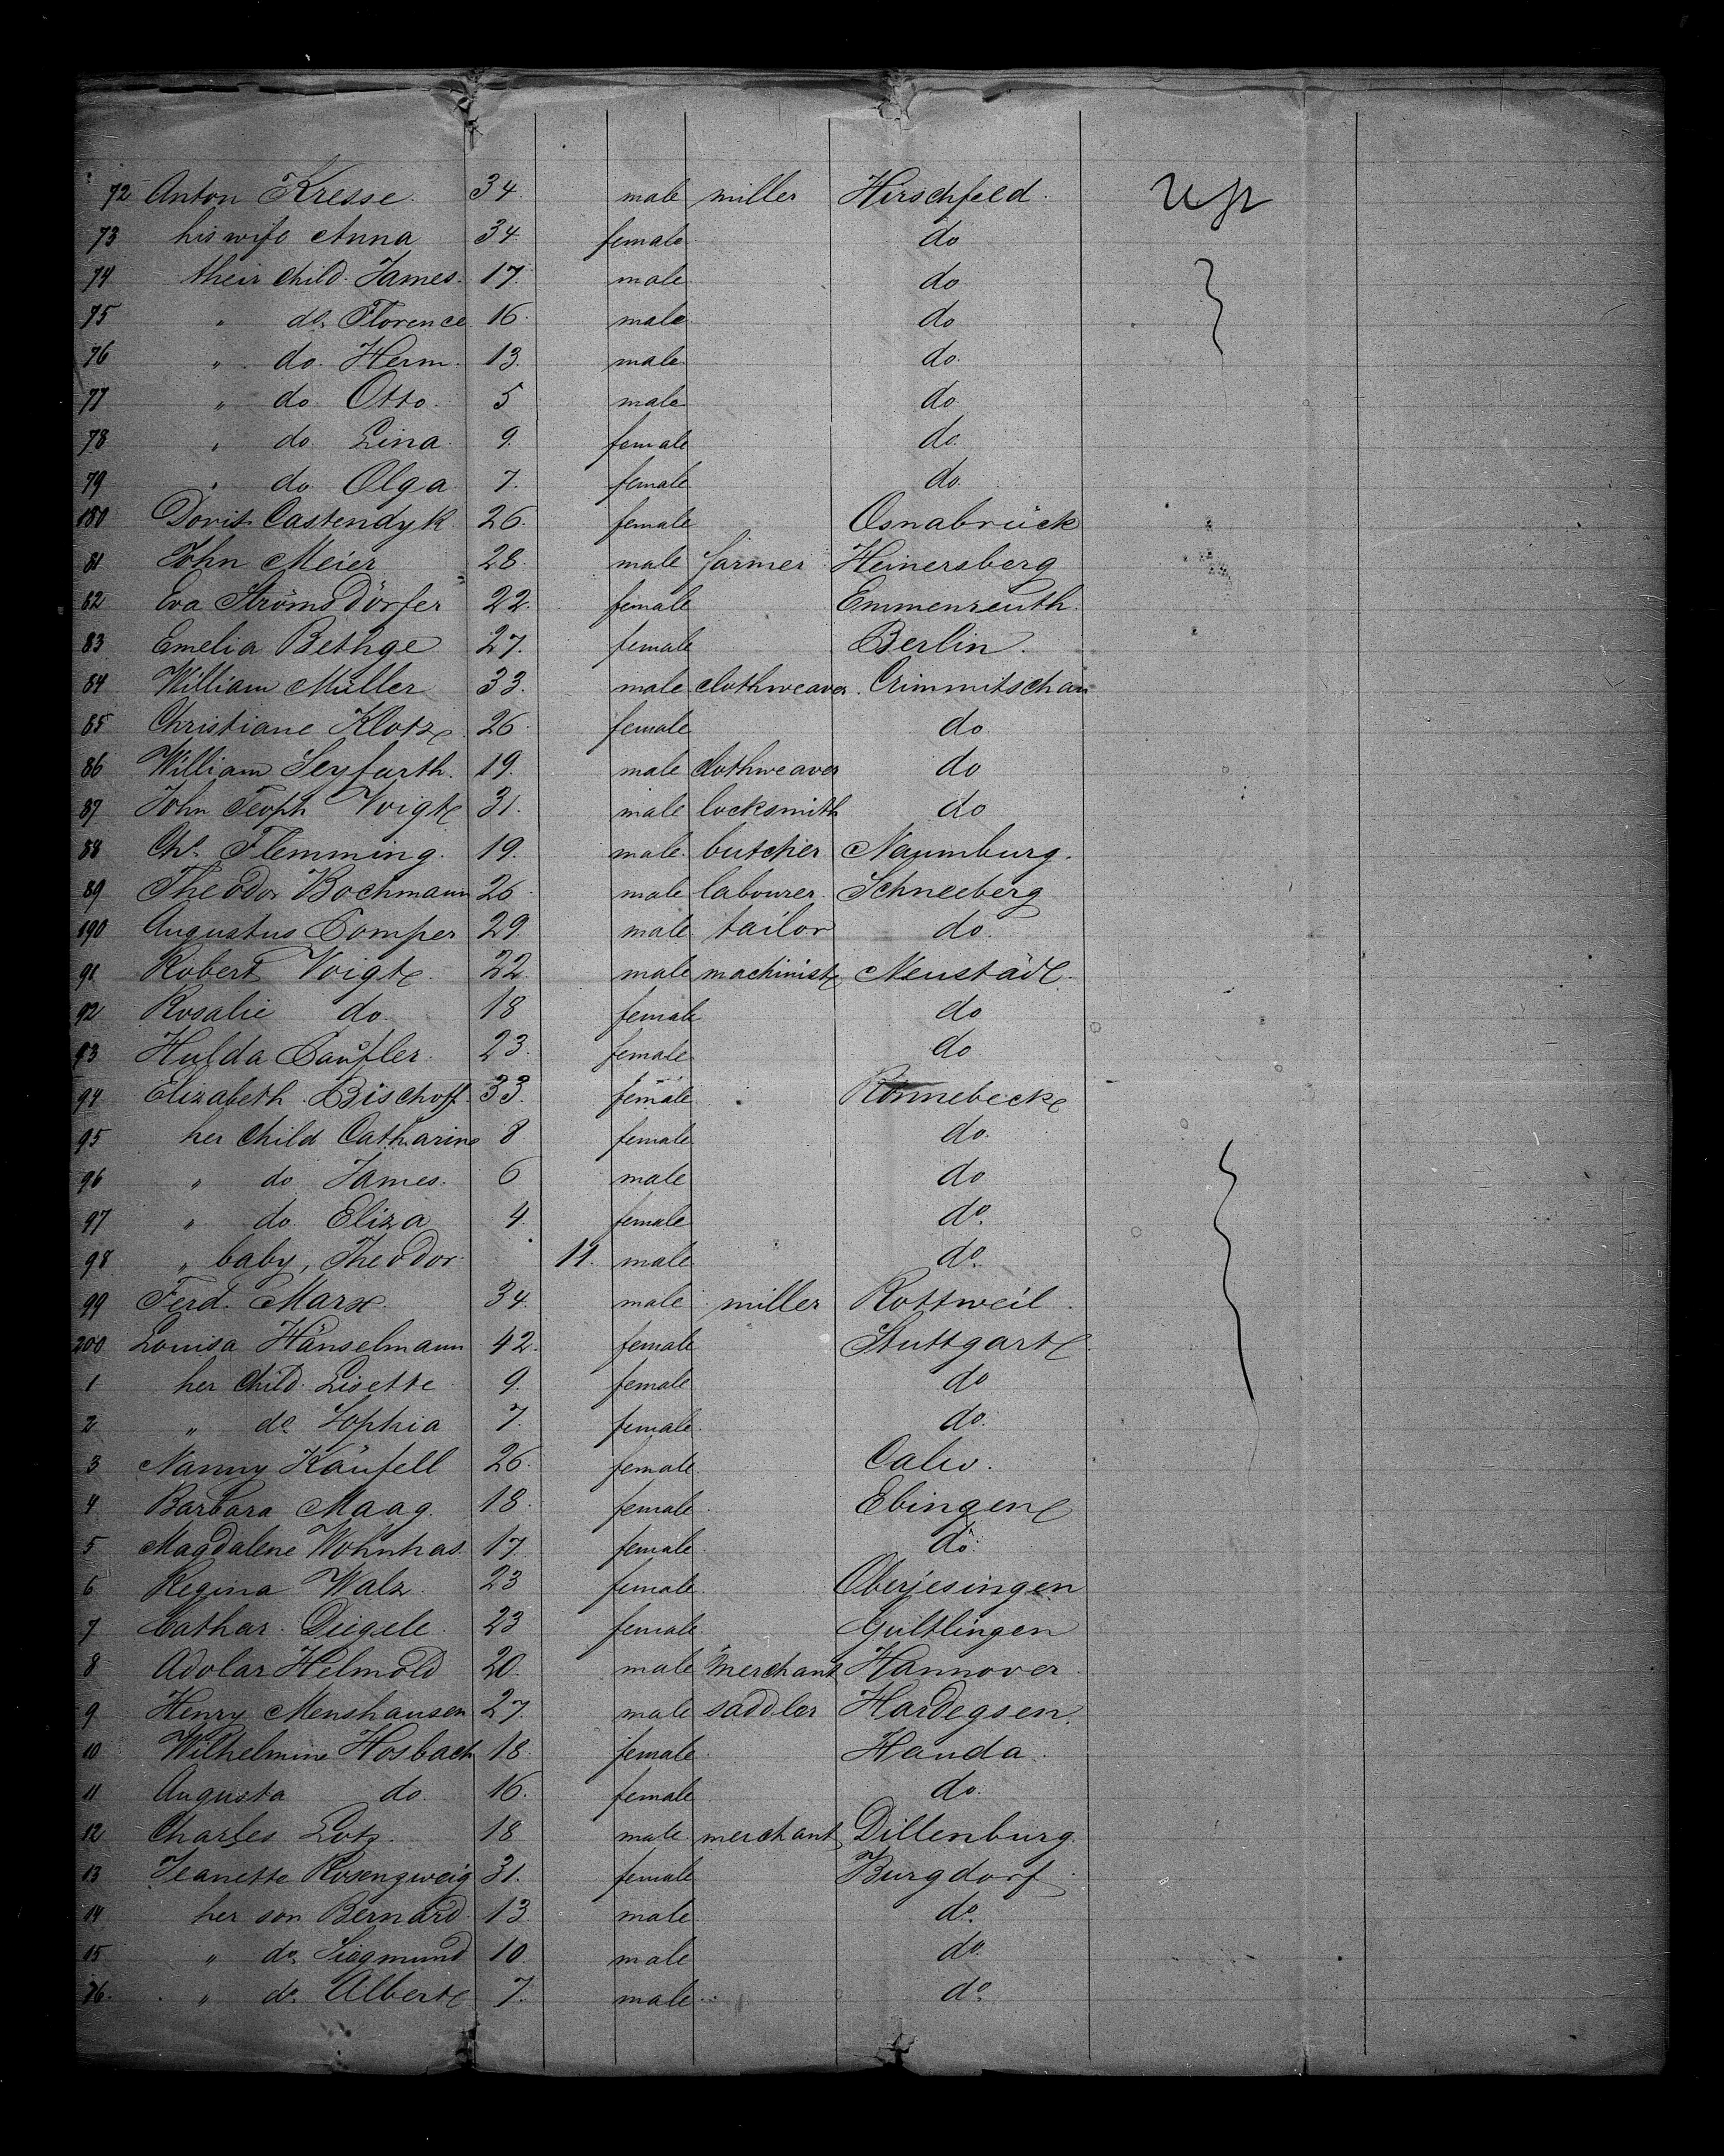 72 Anton Kresse. 34. male miller Hirschfeld.
73 his wife Anna 34 female do
74 their child. James. 17. male do
75 " do. Florence 16. male do
76 " do. Herm. 13. male. do.
77 " do. Otto. 5 male do.
78 " do. Lina. 9. female do.
79 " do Olga 7. female do.
180 Doris Castendyk. 26. female Osnabrück
81 John Meier 28. male farmer Heinersberg
82 Eva Strömsdörfer 22. female Emmenreuth.
83 Emelia Bethge 27. female Berlin.
84 William Müller 33. male clothweaver. Crimmitschau
85 Christiane Klotz 26. female do
86 William Seyfarth. 19. male clothweaver do
87 John Teoph Voigt 31. male locksmith do
88 Chs. Flemming. 19. male. butcher Naumburg.
89 Theodor Bochmann 26. male labourer. Schneeberg
190 Augustus Comper 29. male tailor do.
91 Robert Voigt. 22. male machinist Neustädt.
92 Rosalie do. 18 female do
93 Hulda Caufler. 23. female do
94 Elizabeth Bischoff. 33. female Rönnebeck
95 her child Catharine 8 female do.
96 " do James. 6 male do
97 " do. Eliza 4. female do.
98 " baby, Theodor 11. male do.
99 Ferd. Marx. 34. male miller Rottweil.
200 Louisa Hänselmann 42. female Stuttgart.
1 her child. Lisette 9. female do
2 " do. Sophia 7. female. do.
3 Nanny Käufell 26. female. Calw.
4 Barbara Maag. 18. female. Ebingen
5 Magdalene Wohnhas. 17. female. do.
6 Regina Walz. 23 female. Oberjesingen
7 Cathar. Diegele. 23 female. Gultlingen
8 Adolar Helmold 20. male merchant Hannover.
9 Henry Menshausen 27. male saddler Hardegsen.
10 Wilhelmine Hosbach 18. female. Handa.
11 Augusta do. 16. female. do.
12 Charles Lotz. 18 male. merchant Dillenburg.
13 Jeanette Rosenzweig 31. female Burgdorf.
14 her son Bernard. 13. male. do.
15 " do. Siegmund 10. male do.
16. " do. Albert 7. male. do.